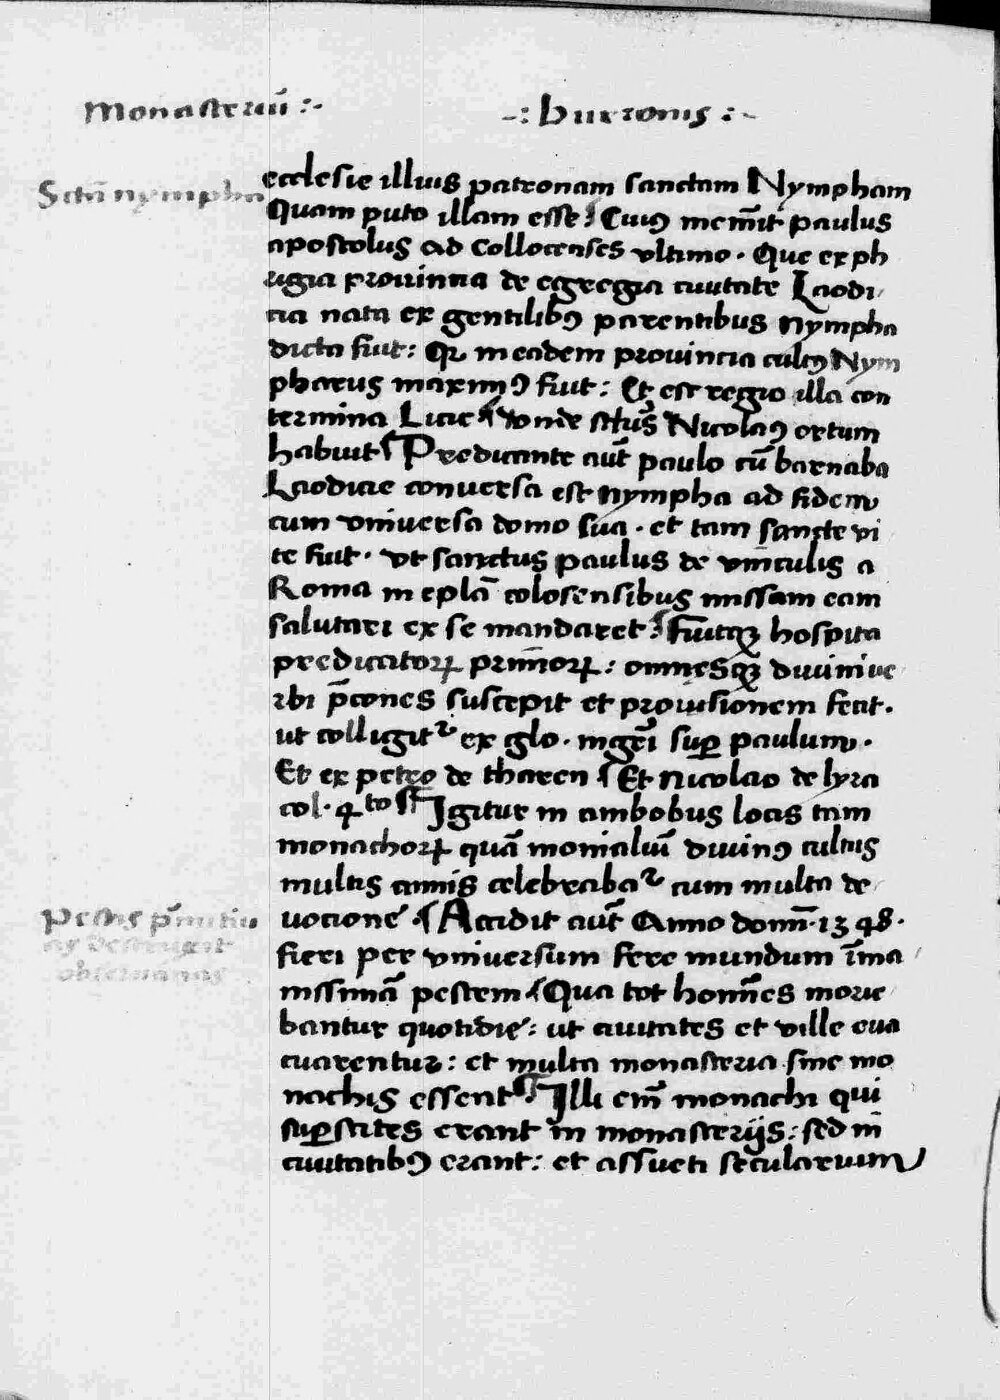 Monasteriū :·
-: burronis :-
Sctā nympha
ecclesie illius patronam sanctam Nympham
Quam puto illam esse: Cuiꝰ mem̄it paulus
apostolus ad Collocenses vltimo · Que ex ph
rigia prouintia de egregia ciuitate Laodi
cia nata ex gentilibꝰ parentibus nympha
dicta fuit: Qꝛ in eadem prouincia cultꝰ Nym
pharus maximꝰ fuit: Et est regio illa con
termina Licie ¶ vnde sctūs Nicolaꝰ ortum
habuit ¶ Predicante aūt paulo cū barnaba
Laodicie conuersa est nympha ad fidem
cum vniuersa domo sua · et tam sancte vi
te fuit · vt sanctus paulus de vinculis a
Roma in eplā colosensibus missam eam
salutari ex se mandaret: ¶ fuitqꝫ hospita
predicatoꝝ primoꝝ : omnesqꝫ diuini ve
rbi p̄cones suscepit et prouisionem fecit ·
ut colligitᷣ ex glo · mgr̄i suꝑ paulum ·
Et ex petro de tharen ¶ Et nicolao de lyra
col · 4to ¶ Igitur in ambobus locis tam
monachoꝝ quā monialiū diuinꝰ cultus
multis annis celebrabaᷣ cum multa de
uocione ¶ Accidit aūt Anno domī · 1348 ·
Pestis p̄mitiu
as destruxit
obseruancias
fieri per vniuersum fere mundum īma
nissimā pestem ¶ Qua tot homīes morie
bantur quotidie : ut ciuitates et ville eua
cuarentur : et multa monasteria sine mo
nachis essent ¶ Illi em̄ monachi qui
suꝑstites erant in monasterijs : sed in
ciuitatibꝰ erant : et assueti secularium